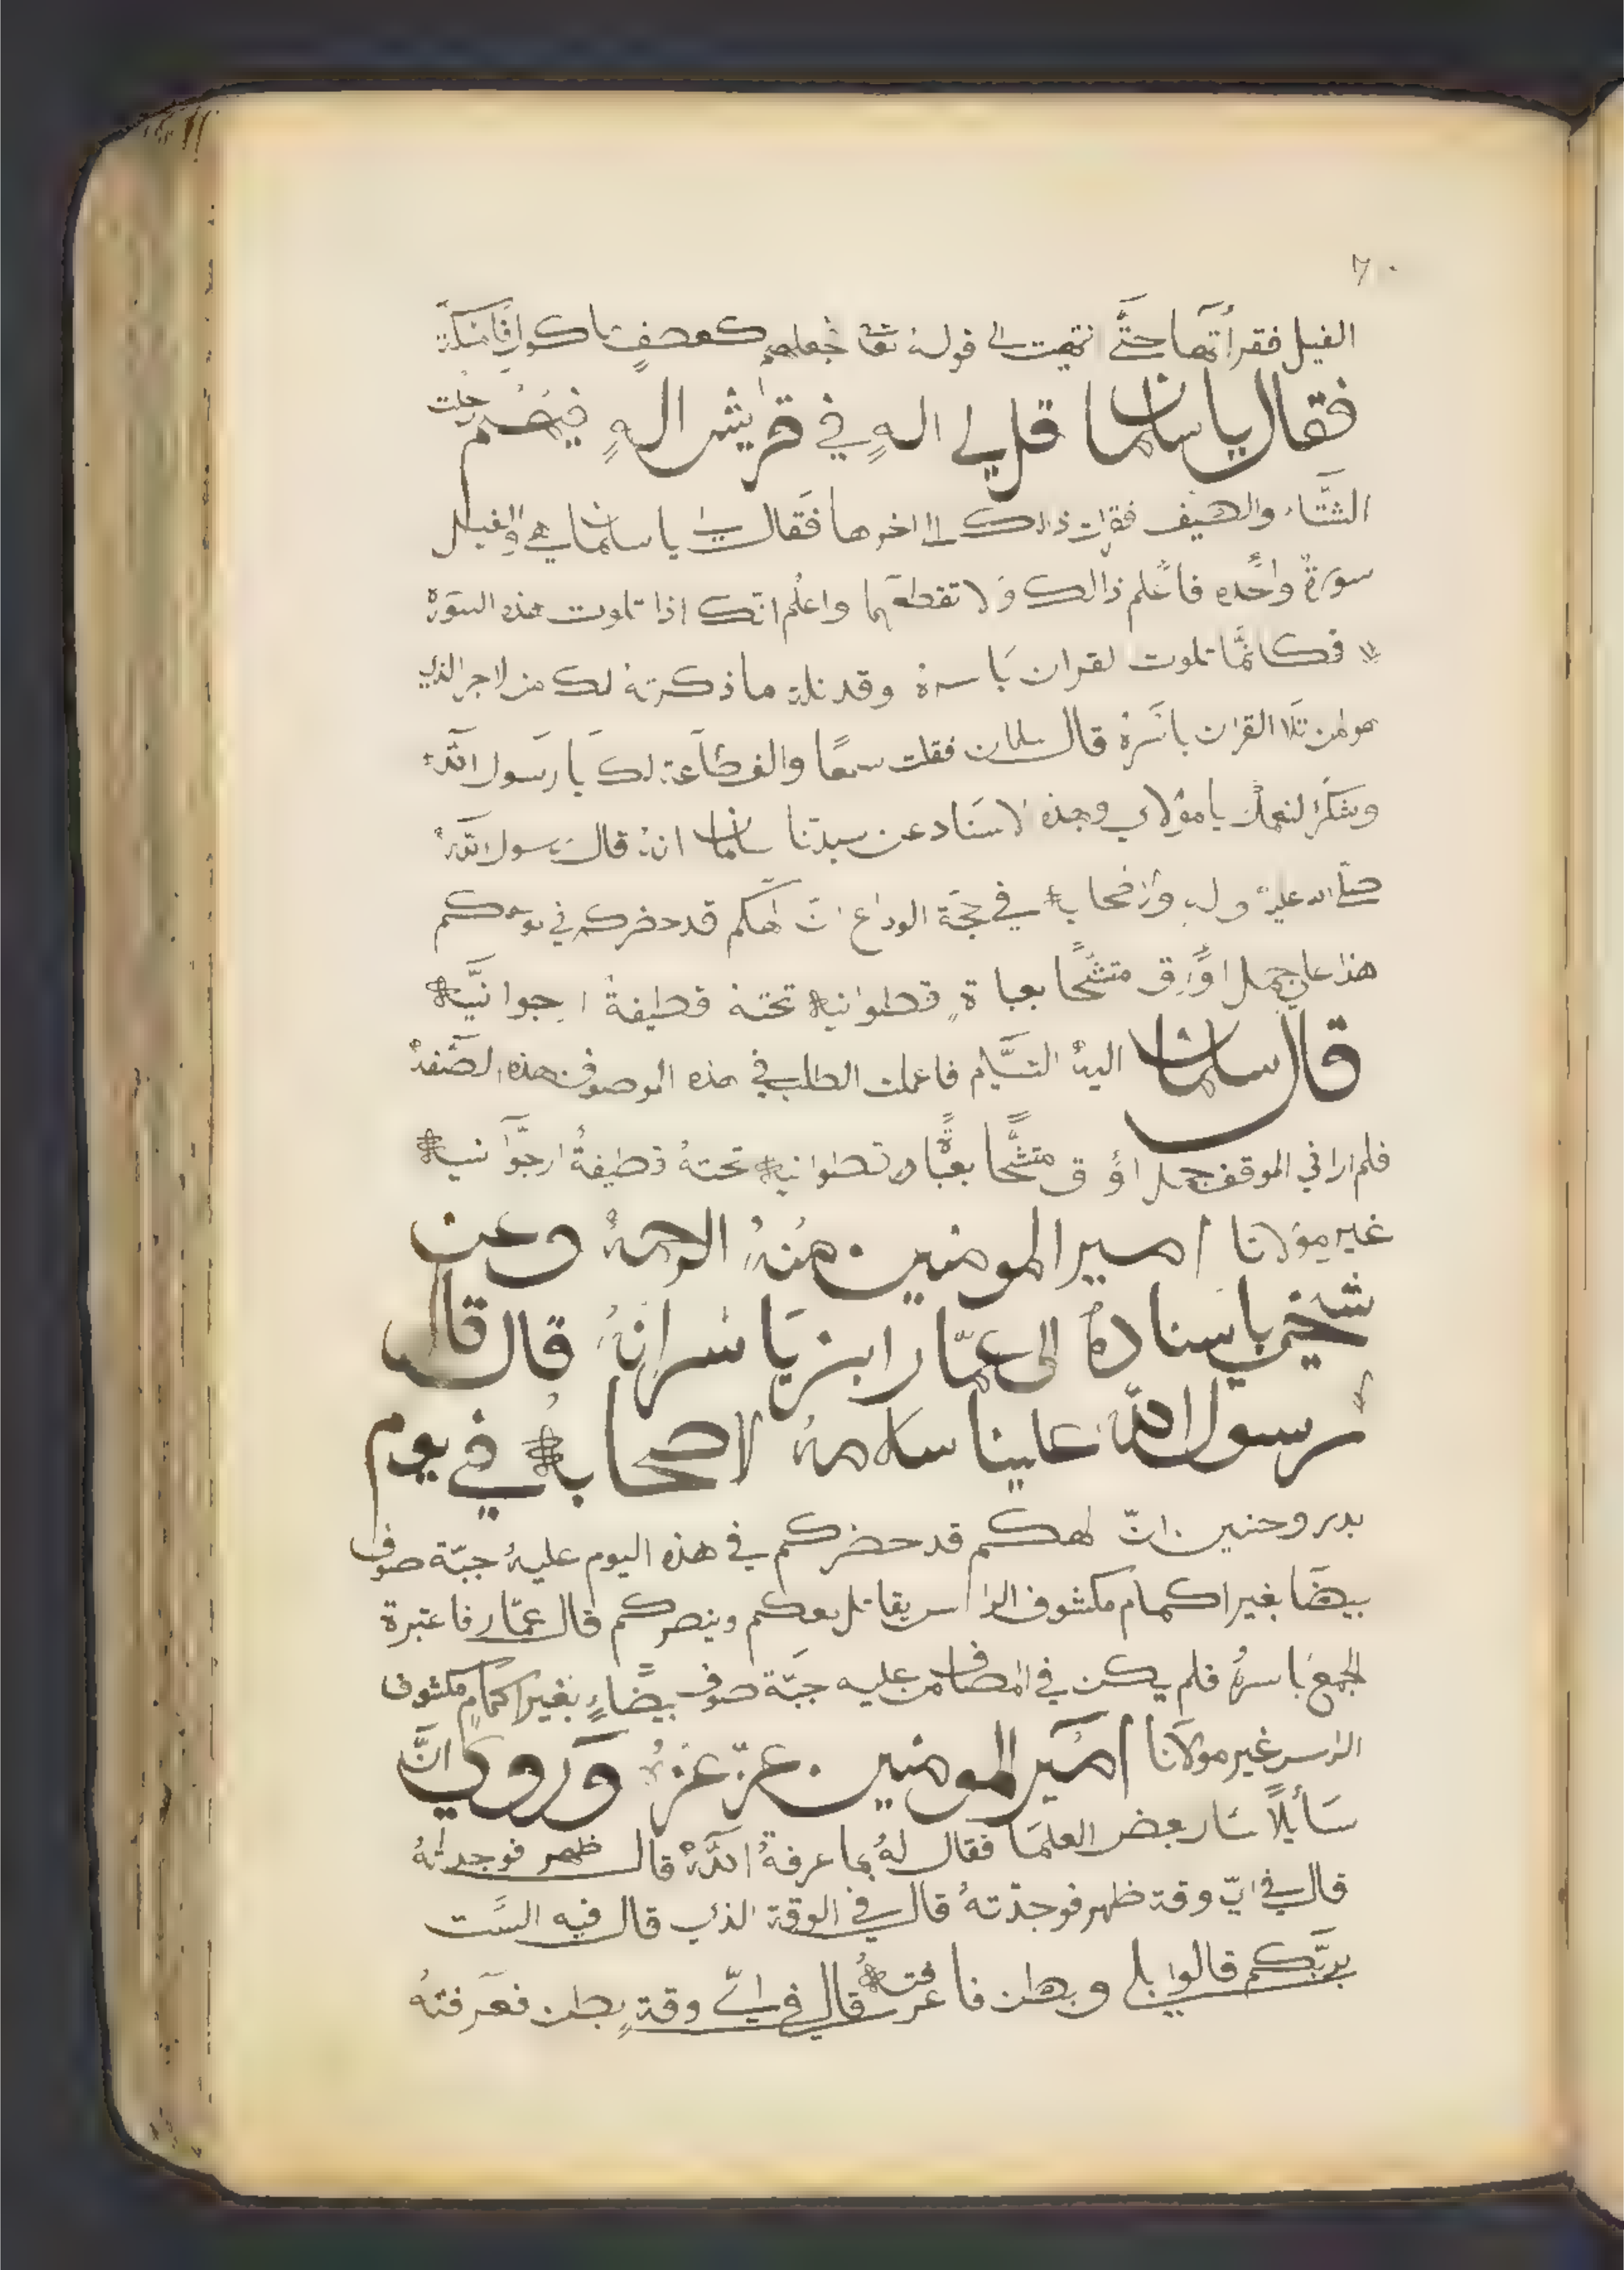 ٧٠
الفيل فقرأتها حتَّى انتهيت الى قوله تعا فجعلهم كعصفٍ ماكول فامسكة
فقال يا سلمان قل لي اله في قريش اله فيهم رحلت
الشتَّاء والصيف فقرات ذالك الا اخرها فقال لي يا سلمان هي والفيل
سورةٌ واحده فاعلم ذالك ولا تقطعهما واعلم انك اذا تلوت هذه السورة
فكانمَّا تلوت لقران باسرة وقد نلة ما ذكرته لك من لاجر الذي
هو لمن تلا القران باسرة قال سلمان فقلت سمعًا والف طاعة لك يا رسول اللّه
وشكرًا لنعمتك يا مولاي وبهذه لاسناد عن سيدنا سلمان انه قال رسول اللّه
صلّى الله عليه وله واصحابه في حجّة الوداع انّ الهكم قد حضركم في موقفكم
هذا على جمل اوٍرق متشّحًا بعباةٍ قطوانيه تحته قطيفة ارجوانيَّه
قال سلمان اليهُ التسَّليم فاعملت الطلب في هذه الموصوف هذه الصّفة
فلم ارا في الموقف جمل اورق متشّحًا بعباة قطوانيه تحتهُ قطيفةُ ارجوَّانيه
غير مولانا امير المومنين منهُ الرحمهُ وعن
شخيي باسناده الى عمّار ابن ياسر انهُ قال قال
رسول اللّه علينا سلامهُ لاصحابه في يوم
بدر وحنين انّ الهكم قد حضركم في هذه اليوم عليهُ جبّة صوف
بيضَا بغير اكمام مكشوف الراس يقاتل معكم وينصركم قال عمّار فاعتبرة
الجمع باسرهُ فلم يكن في المصاف من عليه جبّة صوف بيضاءٍ بغير اكمامٍ مكشوف
الراس غير مولانا امير المومنين عزّ عزهُ وروي انَّ
سَأيلًا سَار بعض العلمَا فقال لهُ بما عرفةُ اللّهُ قال ظهر فوجدتهُ
قال في ايّ وقة ظهر فوجدّتهُ قال في الوقة الذي قال فيه السَّت
بربّكم قالوا بلى وبطن فاعرفته قال في ايّ وقةٍ بطن فعرفتهُ